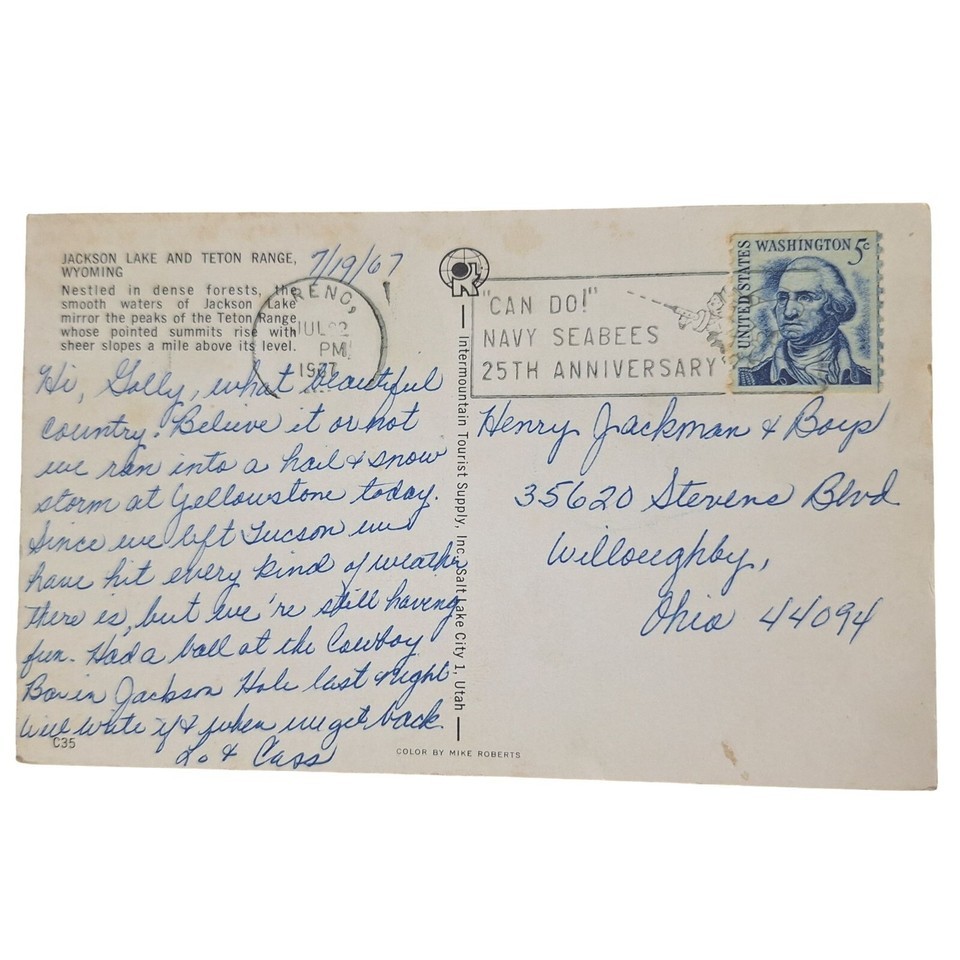 JACKSON LAKE AND TETON RANGE,
WYOMING
Nestled in dense forests, the
smooth waters of Jackson Lake
mirror the peaks of the Teton Range
whose pointed summits rise with
sheer slopes a mile above its level.
7/19/67
RENO,
JUL 22
PM
1967
"CAN DO!"
NAVY SEABEES
25TH ANNIVERSARY
UNITED STATES
WASHINGTON 5c
Hi, Golly, what beautiful
country! Believe it or not
we ran into a hail & snow
storm at Yellowstone today.
Since we left Tucson we
have hit every kind of weather
there is, but we're still having
fun. Had a ball at the Cowboy
Bar in Jackson Hole last night
Will write if & when we get back.
Lo & Cass
Henry Jackman & Boys
35620 Stevens Blvd
Willoughby,
Ohio 44094
Intermountain Tourist Supply, Inc. Salt Lake City 1, Utah
C35
COLOR BY MIKE ROBERTS